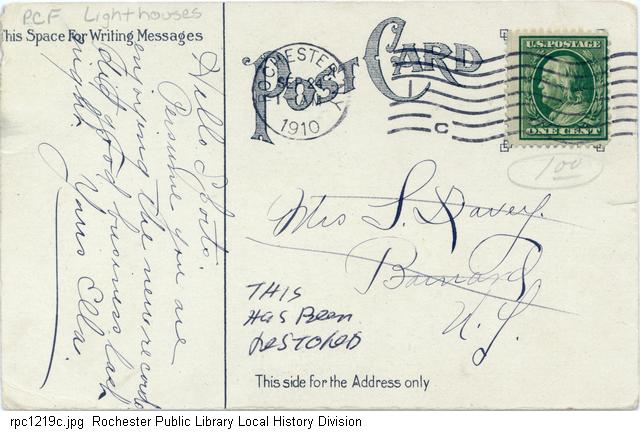 PCF Lighthouses
This Space For Writing Messages
Hello Sports.
Presume you are
enjoying the new records
did good business last
night.
Yours Ella.
POST CARD
ROCHESTER
SEP 24
1910
C
U.S. POSTAGE
ONE CENT
1.00
Mrs S. Davey.
Barnard
N.Y.
THIS
Has Been
RESTORED
This side for the Address only
rpc1219c.jpg Rochester Public Library Local History Division